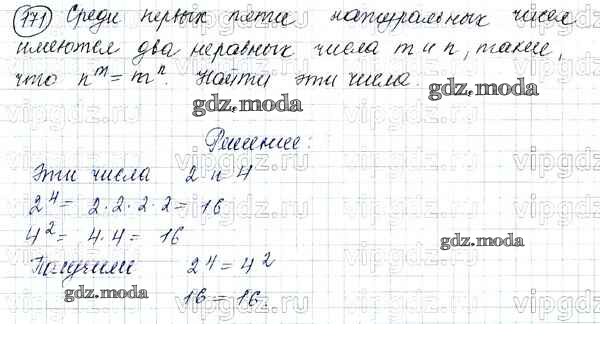 771 Среди первых пяти натуральных чисел
имеются два неравных числа m и n, такие,
что n^m = m^n. Найти эти числа.
gdz.moda
gdz.moda
Решение:
Эти числа 2 и 4
2^4 = 2·2·2·2 = 16
4^2 = 4·4 = 16
gdz.moda
Получили 2^4 = 4^2
gdz.moda
16 = 16.
vipgdz.ru